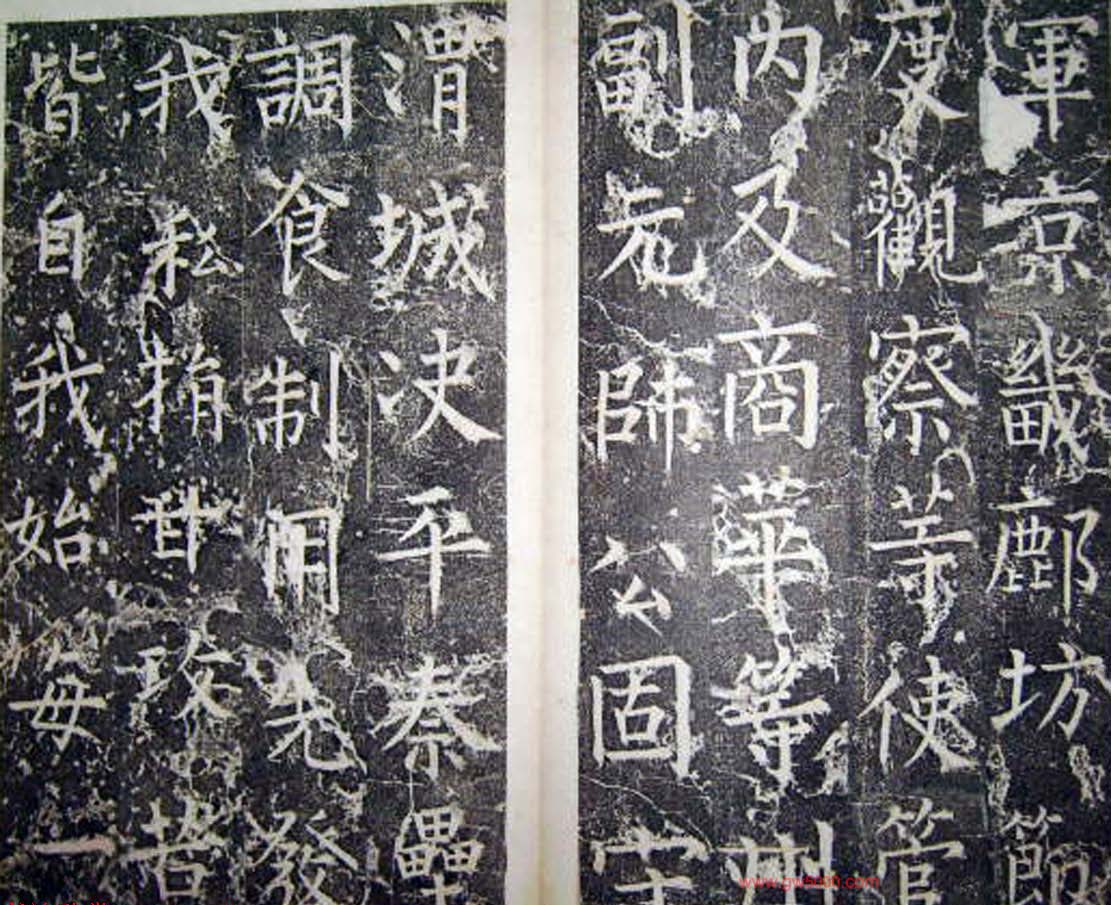 軍京畿鄜坊節
度觀察等使管
內及商華等州
副元帥公固守
渭城決平秦壘
調食制用先發
我私捐甘攻苦
皆自我始每一
www.gw5000.com